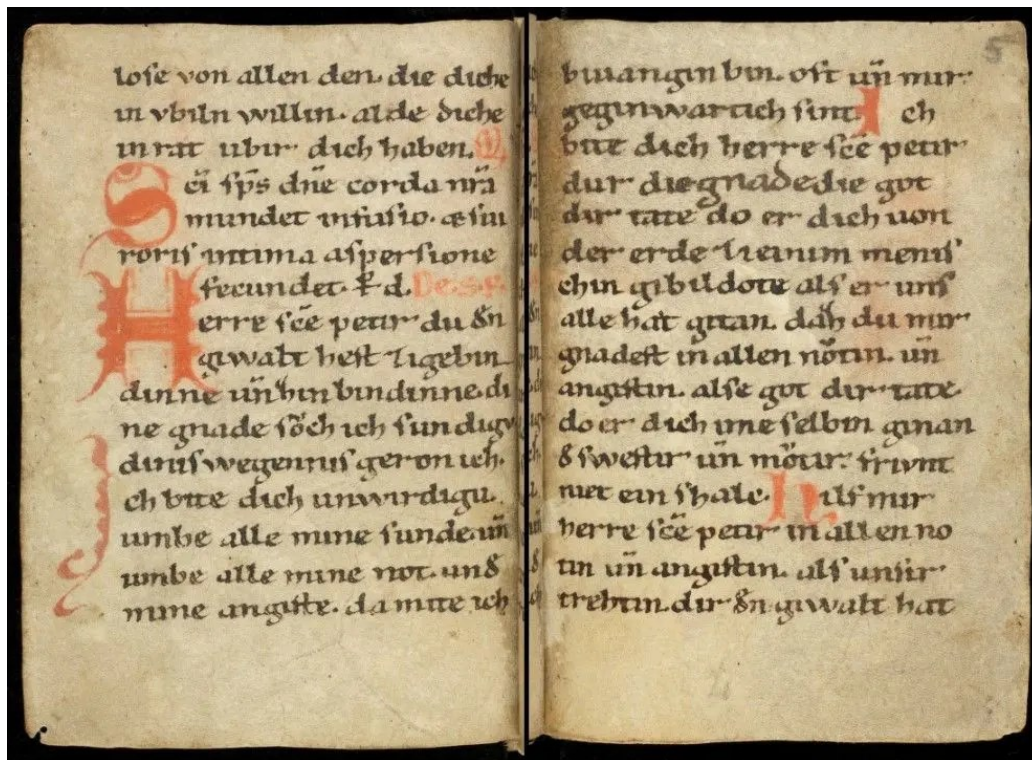 lose von allen den. die diche
in vbiln willin. alde diche
in rat ubir dich haben.
Sc̄i sp̄s dn̄e corda nr̄a
mundet infusio. & sui
roris intima aspersione
fecundet. P. d.
Herre sc̄e petir du den
giwalt hest zigebin
dinne un̄ hin bindinne. di
ne gnade sůch ich sundigv
dinis wegennis geron ich.
Ich bite dich unwirdigu.
umbe alle mine sunde. un̄
umbe alle mine not. und
mine angiste. da mite ich
5
bivangin bin. oft un̄ mir
geginwartich sint. Ich
bite dich herre sc̄e petir
dur die gnade die got
dir tate do er dich von
der erde zieinim menis
chin gibildote als er uns
alle hat gitan. dah du mir
gnadest in allen nôtin. un̄
angistin. alse got dir tate.
do er dich ime selbin ginan
swestir un̄ můtir. frivnt
niet ein shale. Hilf mir
herre sc̄e petir in allen no
tin un̄ angistin. als unsir
trehtin dir den giwalt hat